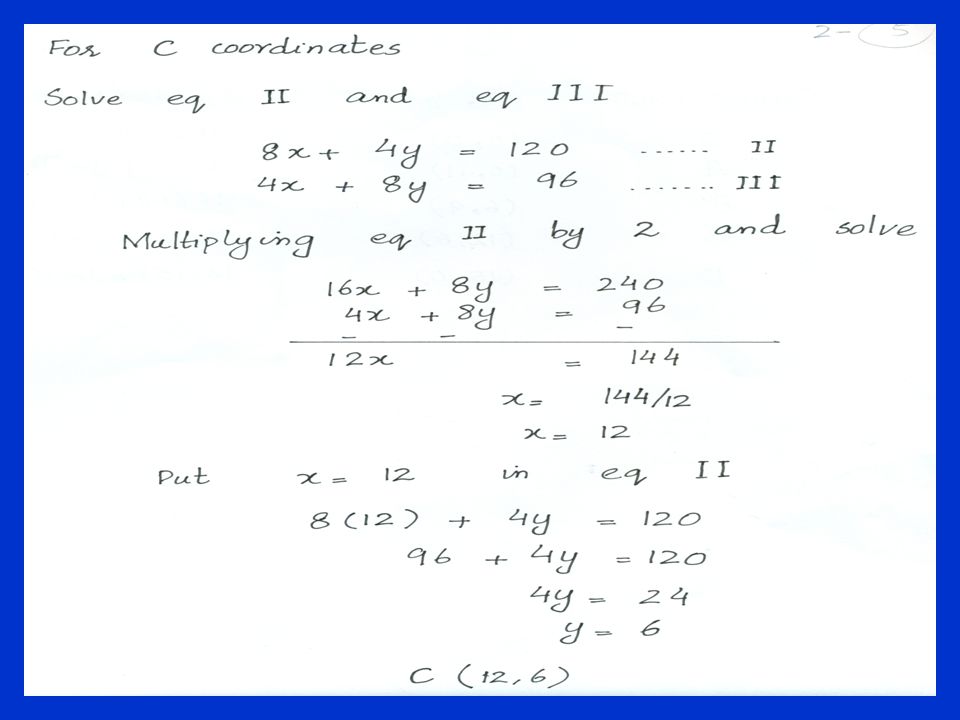 2- 5
For C coordinates
Solve eq II and eq III
8x + 4y = 120 ...... II
4x + 8y = 96 ....... III
Multiplying eq II by 2 and solve
16x + 8y = 240
4x + 8y = 96
- - -
12x = 144
x = 144/12
x = 12
Put x = 12 in eq II
8 (12) + 4y = 120
96 + 4y = 120
4y = 24
y = 6
C (12,6)